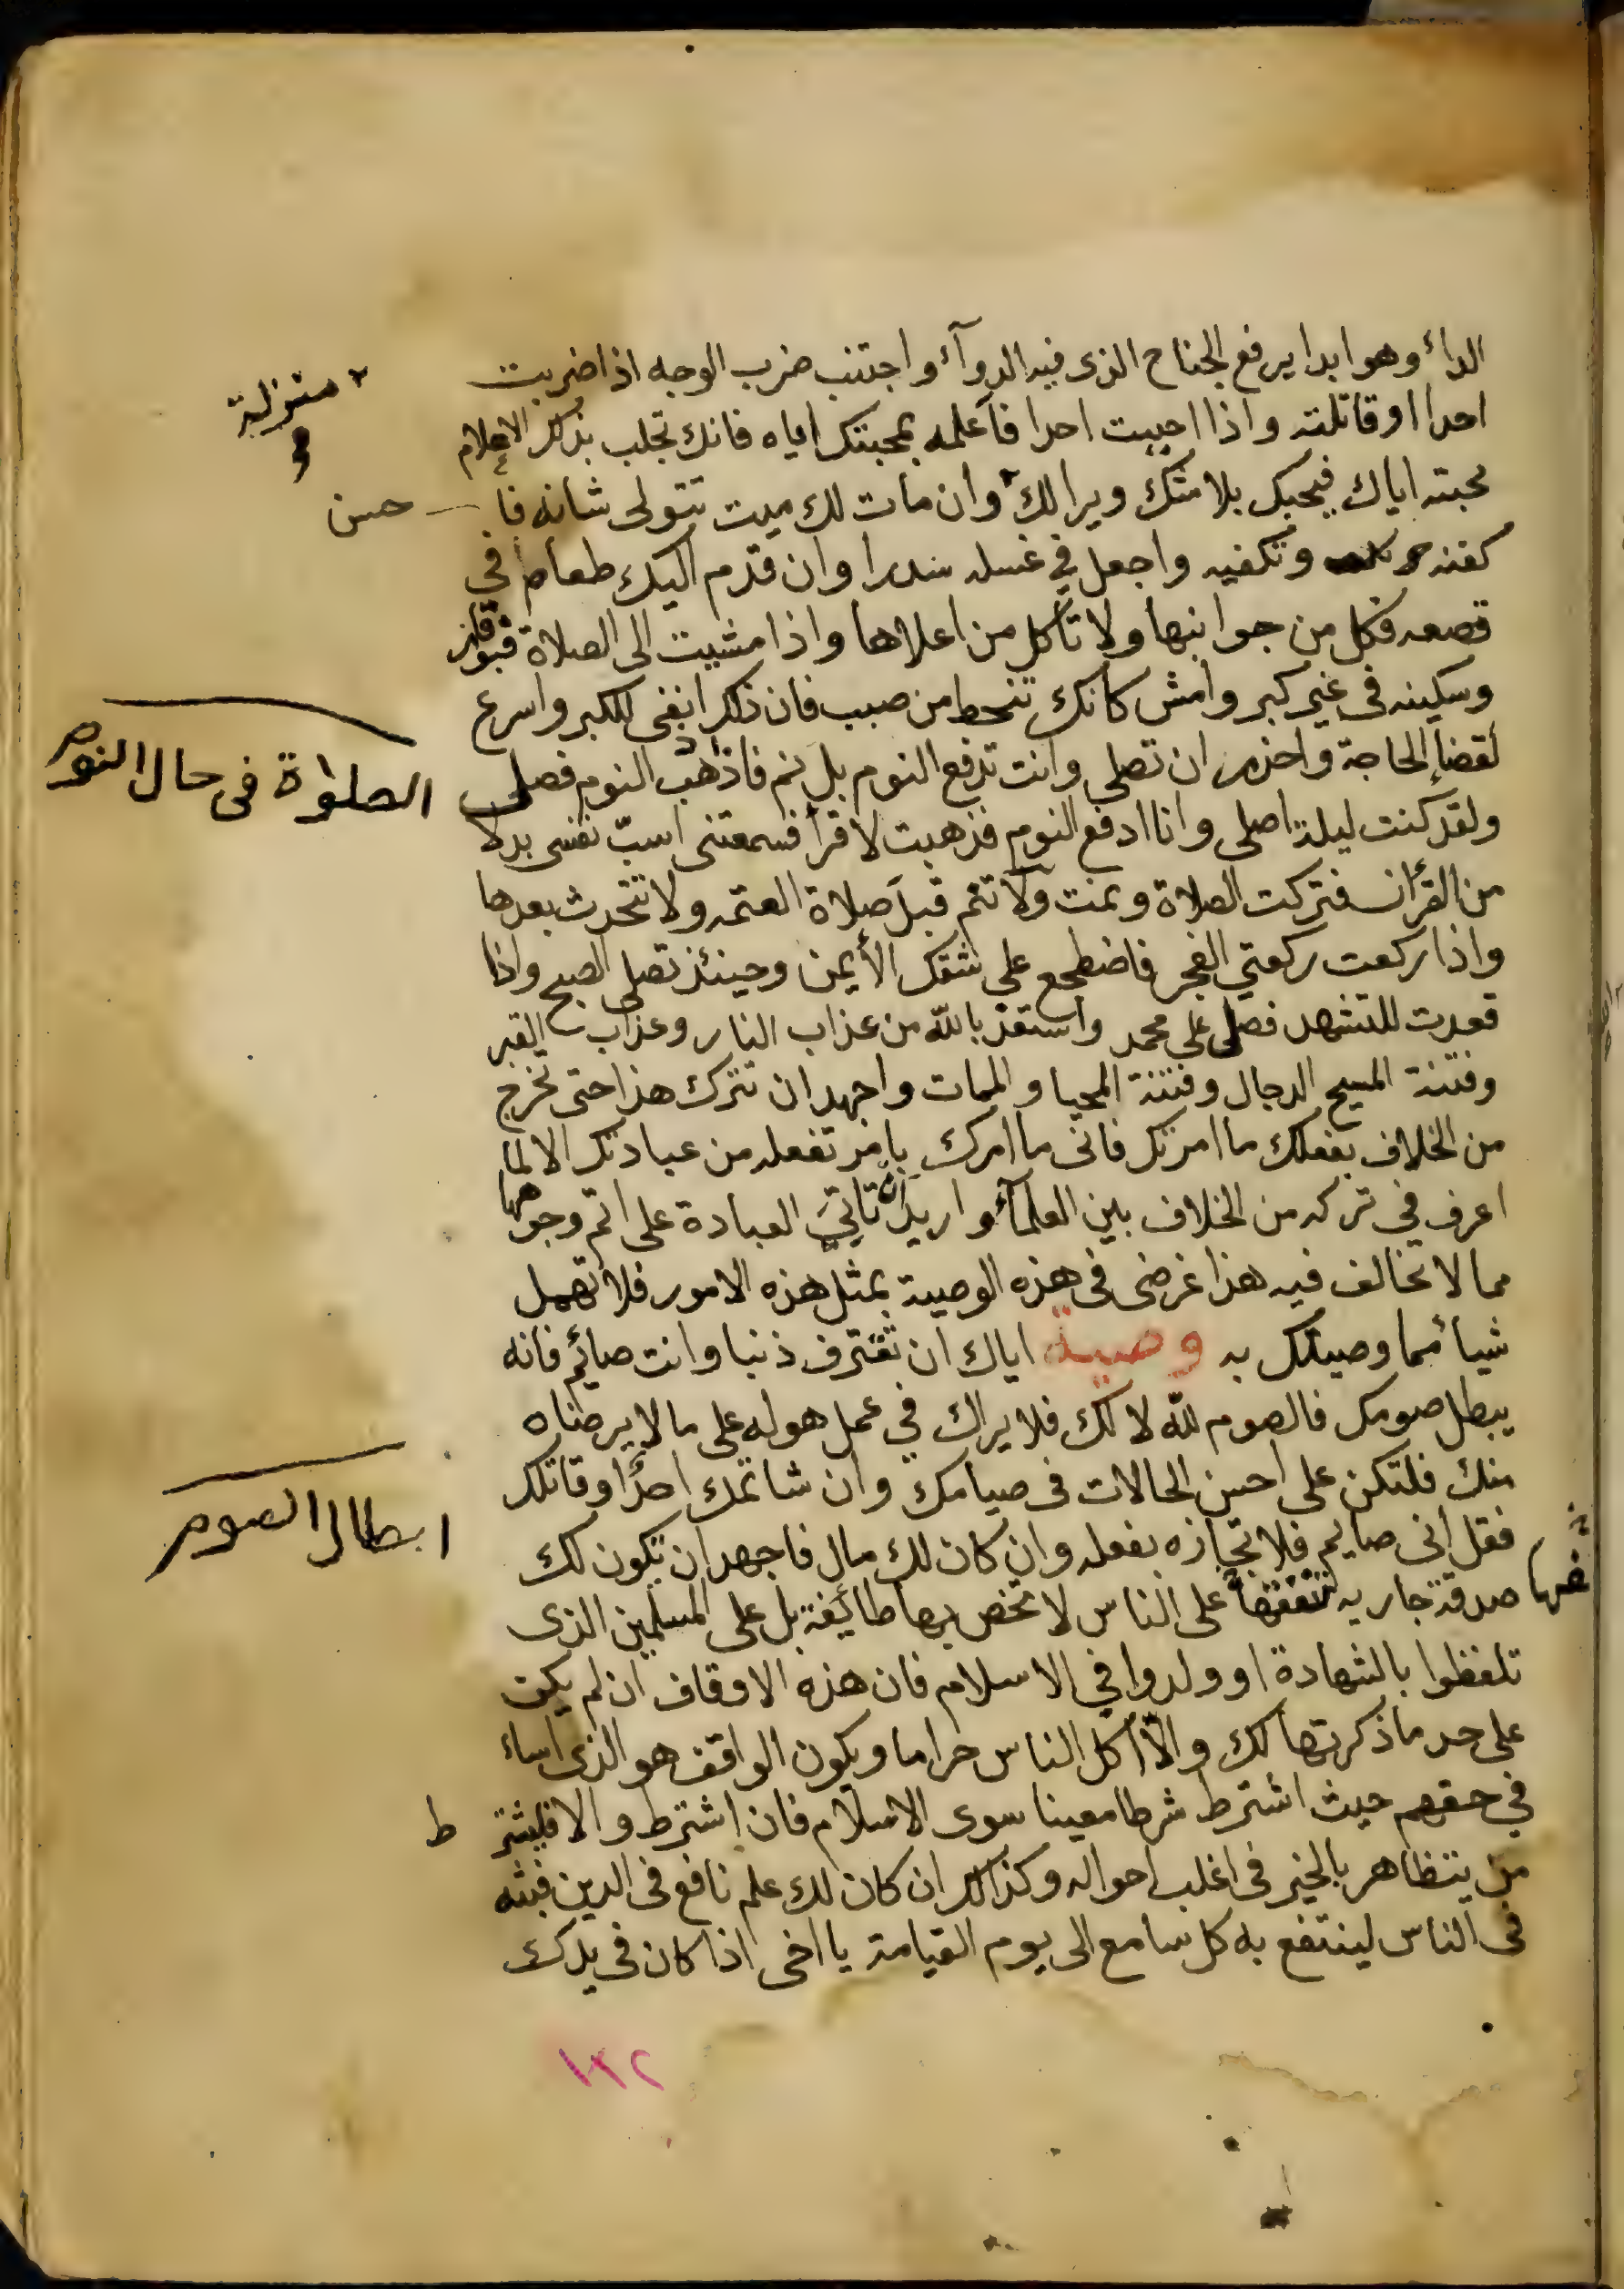 الداء وهو ابدا يرفع الجناح الذى فيه الدوآء واجتنب ضرب الوجه اذا ضربت
احدا او قاتلته واذا احببت احدا فاعلمه بمحبتك اياه فانك تجلب بذلك الاعلام
محبته اياك فيحبك بلا شك ويرا لك وان مات لك ميت تتولى شانه فا حسن
كفنه وتكفيه واجعل في غسله سدرا وان قدم اليك طعام في
قصعه فكل من جوانبها ولا تأكل من اعلاها واذا مشيت الى الصلاة فبوقار
وسكينه فى غير كبر وامش كانك تنحط من صبب فان ذلك انفى للكبر واسرع
لقضاء الحاجة واحذر ان تصلى وانت تدفع النوم بل نم فاذا ذهب النوم فصلى
ولقد كنت ليلة اصلى وانا ادفع النوم فذهبت لاقرا فسمعتنى اسبّ نفسى بدلا
من القرأن فتركت الصلاة ونمت ولا تنم قبل صلاة العتمه ولا تتحدث بعدها
واذا ركعت ركعتي الفجر فاضطجع على شقك الأيمن وحينئذ تصلى الصبح واذا
قعدت للتشهد فصلى على محمد واستعذ بالله من عذاب النار وعذاب القبر
وفتنة المسيح الدجال وفتنة المحيا والممات واجهد ان تترك هذا حتى تخرج
من الخلاف بفعلك ما امرتك فانى ما امرك بامر تفعله من عبادتك الا لما
اعرف في تركه من الخلاف بين العلمآء واريد ان تاتي العبادة على اتم وجوهها
مما لا تخالف فيه هذا غرضى فى هذه الوصية بمثل هذه الامور فلا تهمل
شيأ مما وصيتك به وصية اياك ان تقترف ذنبا وانت صائم فانه
يبطل صومك فالصوم لله لا لك فلا يراك في عمل هو له على ما لا يرضاه
منك فلتكن على احسن الحالات فى صيامك وان شاتمك احدا وقاتلك
فقل انى صايم فلا تجازه بفعله وان كان لك مال فاجهد ان تكون لك
صدقة جاريه تقفها على الناس لا تخص بها طائفة بل على المسلمين الذى
تلفظوا بالشهادة او ولدوا في الاسلام فان هذه الاوقاف ان لم يكن
على حد ما ذكرتها لك والا اكل الناس حراما ويكون الواقف هو الذى اساء
في حقهم حيث اشترط شرطا معينا سوى الاسلام فان اشترط والا فليشتر ط
من يتظاهر بالخير فى اغلب احواله وكذلك ان كان لك علم نافع فى الدين فبثه
فى الناس لينتفع به كل سامع الى يوم القيامة يا اخى اذا كان فى يدك
منزلية
الصلواة فى حال النوم
ابطال الصوم
١٣٢